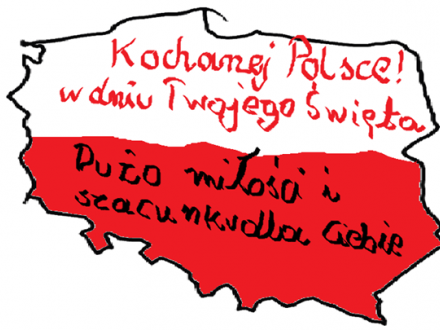 Kochanej Polsce!
w dniu Twojego Święta
Dużo miłości i
szacunku dla Ciebie